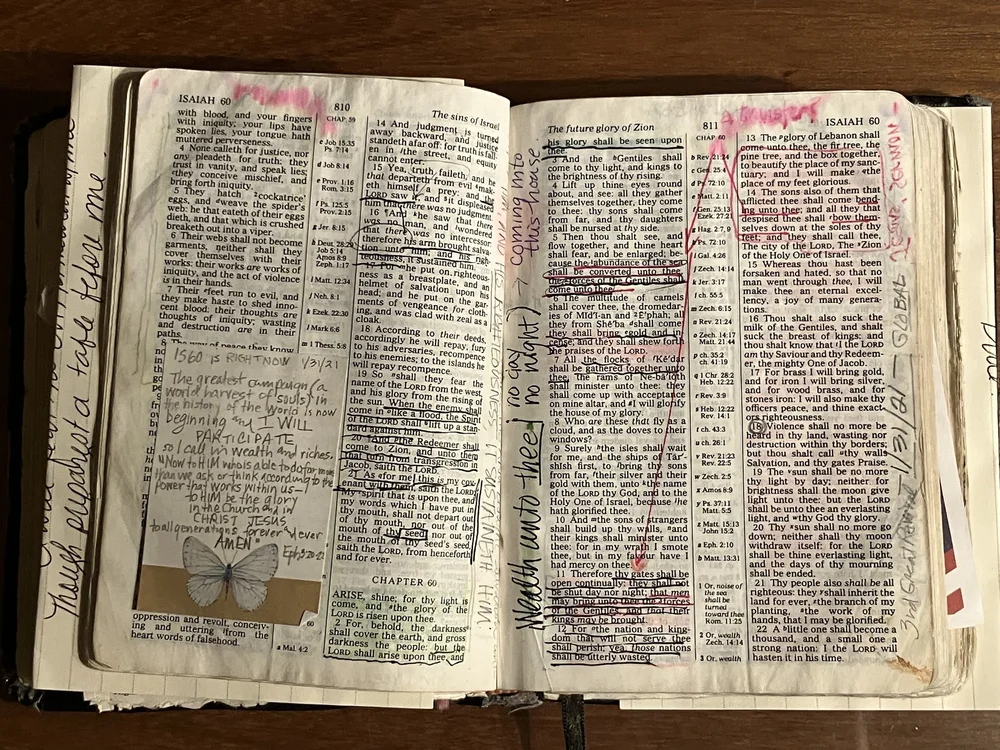 Though
preparest a table before me
ISAIAH 60
810
The sins of Israel
with blood, and your fingers
with iniquity; your lips have
spoken lies, your tongue hath
muttered perverseness.
4 None calleth for justice, nor
any pleadeth for truth: they
trust in vanity, and speak lies;
they conceive mischief, and
bring forth iniquity.
5 They hatch cockatrice'
eggs, and weave the spider's
web: he that eateth of their eggs
dieth, and that which is crushed
breaketh out into a viper.
6 Their webs shall not become
garments, neither shall they
cover themselves with their
works: their works are works of
iniquity, and the act of violence
is in their hands.
7 Their feet run to evil, and
they make haste to shed inno-
cent blood: their thoughts are
thoughts of iniquity; wasting
and destruction are in their
paths.
8 The way of peace they know
1560 is RIGHT NOW 1/31/21
The greatest campaign (a
world harvest of souls) in
the history of the world is now
beginning and I WILL
PARTICIPATE
so I call in wealth and riches.
Now to HIM who is able to do far more
than we ask or think according to the
power that works within us—
to HIM be the glory
in the Church and in
CHRIST JESUS
to all generations forever & ever
AMEN!
Eph 3:20-21
oppression and revolt, conceiv-
ing and uttering from the
heart words of falsehood.
CHAP. 59
c Job 15.35
Ps. 7.14
d Job 8.14
e Prov. 1.16
Rom. 3.15
f Ps. 125.5
Prov. 2.15
g Jer. 8.15
h Deut. 28.29
Job 5.14
Amos 8.9
Zeph. 1.17
i Matt. 12.34
j Neh. 8.1
k Ezek. 22.30
l Mark 6.6
m 1 Thess. 5.8
60
a Mal. 4.2
14 And judgment is turned
away backward, and justice
standeth afar off: for truth is fall-
en in the street, and equity
cannot enter.
15 Yea, truth faileth; and he
that departeth from evil mak-
eth himself a prey: and the
LORD saw it, and it displeased
him that there was no judgment.
16 And he saw that there
was no man, and wondered
that there was no intercessor:
therefore his arm brought salva-
tion unto him; and his righ-
teousness, it sustained him.
17 For he put on righteous-
ness as a breastplate, and an
helmet of salvation upon his
head; and he put on the gar-
ments of vengeance for cloth-
ing, and was clad with zeal as a
cloak.
18 According to their deeds,
accordingly he will repay, fury
to his adversaries, recompence
to his enemies; to the islands he
will repay recompence.
19 So shall they fear the
name of the LORD from the west,
and his glory from the rising of
the sun. When the enemy shall
come in like a flood, the Spirit
of the LORD shall lift up a stan-
dard against him.
20 And the Redeemer shall
come to Zion, and unto them
that turn from transgression in
Jacob, saith the LORD.
21 As for me, this is my cov-
enant with them, saith the LORD;
My spirit that is upon thee, and
my words which I have put in
thy mouth, shall not depart out
of thy mouth, nor out of the
mouth of thy seed, nor out of
the mouth of thy seed's seed,
saith the LORD, from henceforth
and for ever.
CHAPTER 60
ARISE, shine; for thy light is
come, and the glory of the
LORD is risen upon thee.
2 For, behold, the darkness
shall cover the earth, and gross
darkness the people: but the
LORD shall arise upon thee, and
HIS RIGHTEOUSNESS SUSTAINETH HIM
Wealth unto thee
no day
no night
coming into
this house
The future glory of Zion
811
ISAIAH 60
his glory shall be seen upon
thee.
3 And the Gentiles shall
come to thy light, and kings to
the brightness of thy rising.
4 Lift up thine eyes round
about, and see: all they gather
themselves together, they come
to thee: thy sons shall come
from far, and thy daughters
shall be nursed at thy side.
5 Then thou shalt see, and
flow together, and thine heart
shall fear, and be enlarged; be-
cause the abundance of the sea
shall be converted unto thee,
the forces of the Gentiles shall
come unto thee.
6 The multitude of camels
shall cover thee, the dromedar-
ies of Mĭd'ĭ-an and Ē'phah; all
they from Shē'ba shall come:
they shall bring gold and in-
cense; and they shall shew forth
the praises of the LORD.
7 All the flocks of Kē'dar
shall be gathered together unto
thee, the rams of Ne-bā'ioth
shall minister unto thee: they
shall come up with acceptance
on mine altar, and I will glorify
the house of my glory.
8 Who are these that fly as a
cloud, and as the doves to their
windows?
9 Surely the isles shall wait
for me, and the ships of Tär'-
shish first, to bring thy sons
from far, their silver and their
gold with them, unto the name
of the LORD thy God, and to the
Holy One of Israel, because he
hath glorified thee.
10 And the sons of strangers
shall build up thy walls, and
their kings shall minister unto
thee: for in my wrath I smote
thee, but in my favour have I
had mercy on thee.
11 Therefore thy gates shall be
open continually; they shall not
be shut day nor night; that men
may bring unto thee the forces
of the Gentiles, and that their
kings may be brought.
12 For the nation and king-
dom that will not serve thee
shall perish; yea, those nations
shall be utterly wasted.
CHAP. 60
b Rev. 21.24
c Matt. 2.11
f Gen. 25.13
Ezek. 27.21
g Hag. 2.7, 9
h Ps. 72.10
i Gal. 4.26
j Zech. 14.14
k Jer. 3.17
l ch. 55.5
m Zech. 6.15
n Rev. 21.24
o Zech. 14.17
Matt. 21.44
p ch. 35.2
ch. 41.19
q 1 Chr. 28.2
Heb. 12.22
r Rev. 3.9
s Heb. 12.22
Rev. 14.1
t ch. 43.3
u ch. 26.1
v Rev. 21.23
Rev. 22.5
w Zech. 2.5
x Amos 8.9
y Ps. 37.11
Matt. 5.5
z Matt. 15.13
John 15.2
a Eph. 2.10
b Matt. 13.31
1 Or, noise of
the sea
shall be
turned
toward thee
Rom. 11.25
2 Or, wealth
Zech. 14.14
3 Or, wealth
13 The glory of Lebanon shall
come unto thee, the fir tree, the
pine tree, and the box together,
to beautify the place of my sanc-
tuary; and I will make the
place of my feet glorious.
14 The sons also of them that
afflicted thee shall come bend-
ing unto thee; and all they that
despised thee shall bow them-
selves down at the soles of thy
feet; and they shall call thee,
The city of the LORD, The Zion
of the Holy One of Israel.
15 Whereas thou hast been
forsaken and hated, so that no
man went through thee, I will
make thee an eternal excel-
lency, a joy of many genera-
tions.
16 Thou shalt also suck the
milk of the Gentiles, and shalt
suck the breast of kings: and
thou shalt know that I the LORD
am thy Saviour and thy Redeem-
er, the mighty One of Jacob.
17 For brass I will bring gold,
and for iron I will bring silver,
and for wood brass, and for
stones iron: I will also make thy
officers peace, and thine exact-
ors righteousness.
18 Violence shall no more be
heard in thy land, wasting nor
destruction within thy borders;
but thou shalt call thy walls
Salvation, and thy gates Praise.
19 The sun shall be no more
thy light by day; neither for
brightness shall the moon give
light unto thee: but the LORD
shall be unto thee an everlasting
light, and thy God thy glory.
20 Thy sun shall no more go
down; neither shall thy moon
withdraw itself: for the LORD
shall be thine everlasting light,
and the days of thy mourning
shall be ended.
21 Thy people also shall be all
righteous: they shall inherit the
land for ever, the branch of my
planting, the work of my
hands, that I may be glorified.
22 A little one shall become a
thousand, and a small one a
strong nation: I the LORD will
hasten it in his time.
3rd Great 1/31/21 — GLOBAL